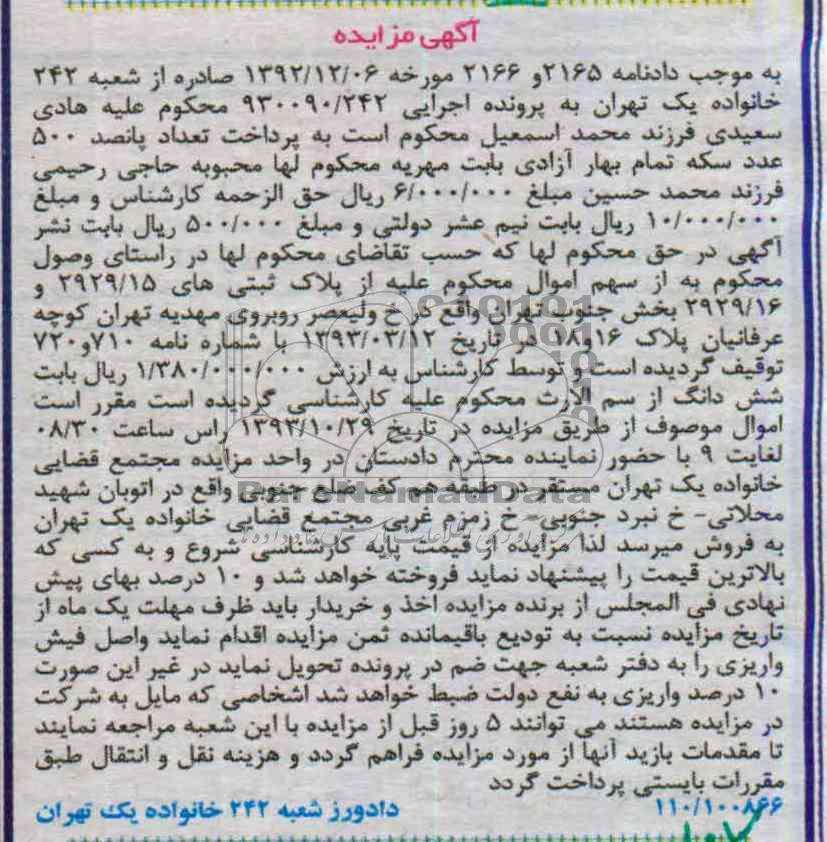 آگهی مزایده
به موجب دادنامه ۲۱۶۵و ۲۱۶۶ مورخه ۱۳۹۲/۱۲/۰۶ صادره از شعبه ۲۴۲
خانواده یک تهران به پرونده اجرایی ۹۳۰۰۹۰/۲۴۲ محکوم علیه هادی
سعیدی فرزند محمد اسمعیل محکوم است به پرداخت تعداد پانصد ۵۰۰
عدد سکه تمام بهار آزادی بابت مهریه محکوم لها محبوبه حاجی رحیمی
فرزند محمد حسین مبلغ ۶/۰۰۰/۰۰۰ ریال حق الزحمه کارشناس و مبلغ
۱۰/۰۰۰/۰۰۰ ریال بابت نیم عشر دولتی و مبلغ ۵۰۰/۰۰۰ ریال بابت نشر
آگهی در حق محکوم لها که حسب تقاضای محکوم لها در راستای وصول
محکوم به از سهم اموال محکوم علیه از پلاک ثبتی های ۲۹۲۹/۱۵ و
۲۹۲۹/۱۶ بخش جنوب تهران واقع در خ ولیعصر روبروی مهدیه تهران کوچه
عرفانیان پلاک ۱۶و۱۸ در تاریخ ۱۳۹۳/۰۳/۱۲ با شماره نامه ۷۱۰و۷۲۰
توقیف گردیده است و توسط کارشناس به ارزش ۱/۳۸۰/۰۰۰/۰۰۰ ریال بابت
شش دانگ از سم الارث محکوم علیه کارشناسی گردیده است مقرر است
اموال موصوف از طریق مزایده در تاریخ ۱۳۹۳/۱۰/۲۹ راس ساعت ۰۸/۳۰
لغایت ۹ با حضور نماینده محترم دادستان در واحد مزایده مجتمع قضایی
خانواده یک تهران مستقر در طبقه هم کف ضلع جنوبی واقع در اتوبان شهید
محلاتی- خ نبرد جنوبی- خ زمزم غربی مجتمع قضایی خانواده یک تهران
به فروش میرسد لذا مزایده از قیمت پایه کارشناسی شروع و به کسی که
بالاترین قیمت را پیشنهاد نماید فروخته خواهد شد و ۱۰ درصد بهای پیش
نهادی فی المجلس از برنده مزایده اخذ و خریدار باید ظرف مهلت یک ماه از
تاریخ مزایده نسبت به تودیع باقیمانده ثمن مزایده اقدام نماید واصل فیش
واریزی را به دفتر شعبه جهت ضم در پرونده تحویل نماید در غیر این صورت
۱۰ درصد واریزی به نفع دولت ضبط خواهد شد اشخاصی که مایل به شرکت
در مزایده هستند می توانند ۵ روز قبل از مزایده با این شعبه مراجعه نمایند
تا مقدمات بازید آنها از مورد مزایده فراهم گردد و هزینه نقل و انتقال طبق
مقررات بایستی پرداخت گردد
۱۱۰/۱۰۰۸۶۶ دادورز شعبه ۲۴۲ خانواده یک تهران
ParsNamadData